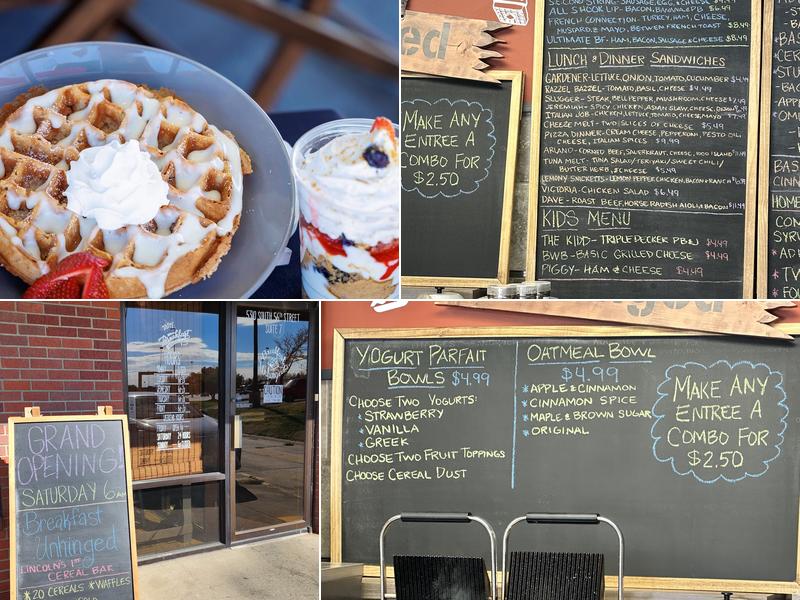 ALL SHOOK UP- BACON, BANANA & PB $6.49
FRENCH CONNECTION- TURKEY, HAM, CHEESE,
MUSTARD, & MAYO, BETWEEN FRENCH TOAST $8.49
ULTIMATE BF- HAM, BACON, SAUSAGE & CHEESE $8.49
LUNCH & DINNER SANDWICHES
GARDENER-LETTUCE, ONION, TOMATO, CUCUMBER $4.49
RAZZEL BAZZEL-TOMATO, BASIL, CHEESE $4.49
SLUGGER- STEAK, BELL PEPPER, MUSHROOM, CHEESE $7.49
JEREMIAH- SPICY CHICKEN, ASIAN SLAW, CHEESE,
ITALIAN JOB- CHICKEN, LETTUCE, TOMATO, CHEESE, MAYO
CHEEZE MELT- TWO SLICES OF CHEESE $5.49
PIZZA DINNER-CREAM CHEESE, PEPPERONI, PESTO OIL,
CHEESE, ITALIAN SPICES $9.99
ARNO- CORNED BEEF, SAUERKRAUT, CHEESE, 1000 ISLAND
TUNA MELT- TUNA SALAD/TERIYAKI/SWEET CHILI/
BUTTER HERB, & CHEESE $5.49
LEMONY SNICKETTS- LEMON PEPPER CHICKEN, BACON & RANCH
VICTORIA-CHICKEN SALAD $6.49
DAVE- ROAST BEEF, HORSE RADISH AIOLI, & BACON $11.49
KIDS MENU
THE KIDD- TRIPLE DECKER PB&J $4.49
BWB-BASIC GRILLED CHEESE $4.49
PIGGY- HAM & CHEESE $4.49
ed
MAKE ANY
ENTREE A
COMBO FOR
$2.50
530 SOUTH 56TH STREET
SUITE 7
GRAND
OPENING
SATURDAY 6AM
Breakfast
Unhinged
LINCOLN'S 1ST
CEREAL BAR
*20 CEREALS *WAFFLES
YOGURT PARFAIT
BOWLS $4.99
CHOOSE TWO YOGURTS:
* STRAWBERRY
* VANILLA
* GREEK
CHOOSE TWO FRUIT TOPPINGS
CHOOSE CEREAL DUST
OATMEAL BOWL
$4.99
* APPLE & CINNAMON
* CINNAMON SPICE
* MAPLE & BROWN SUGAR
* ORIGINAL
MAKE ANY
ENTREE A
COMBO FOR
$2.50